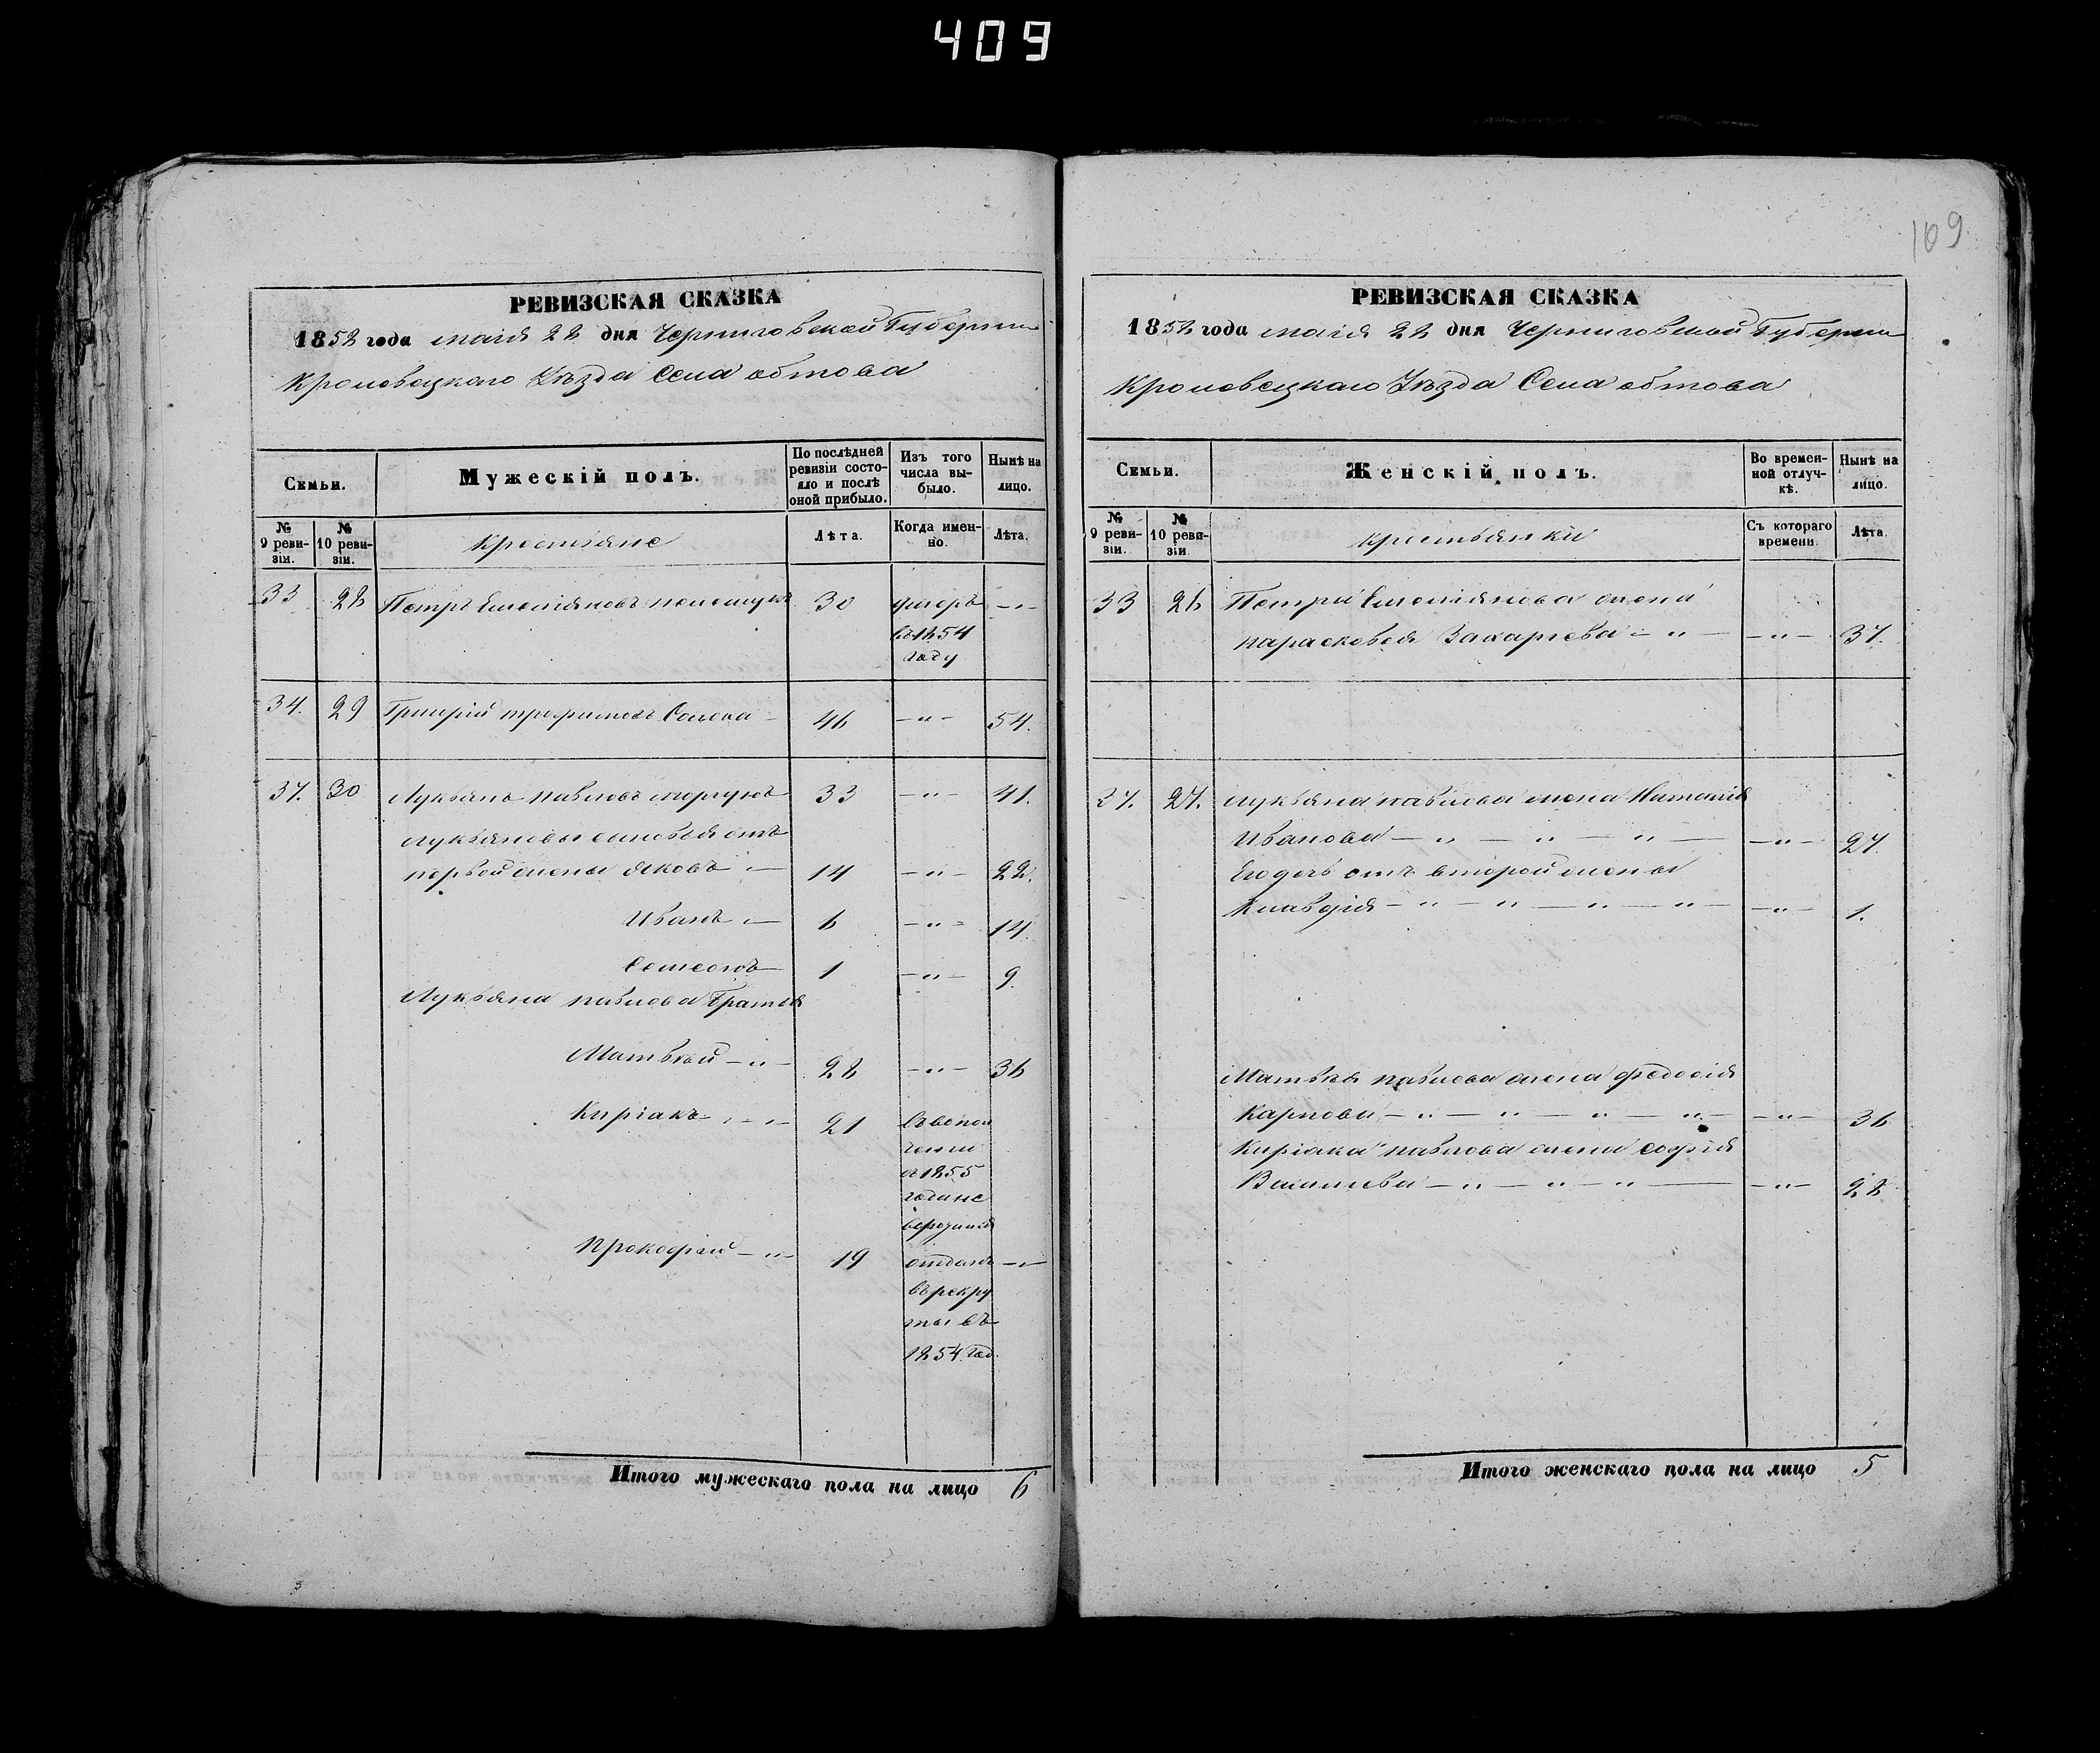 409
109
РЕВИЗСКАЯ СКАЗКА
1858 года маія 28 дня Черниговской Губерніи
Кролевецкаго Уѣзда Села обтова
Семьи.
Мужескій полъ.
По послѣдней ревизіи состояло и послѣ оной прибыло.
Изъ того числа выбыло.
Нынѣ на лицо.
№ 9 ревизіи.
№ 10 ревизіи.
Крестьяне
Лѣта.
Когда именно.
Лѣта.
33 28 Петръ Емеліяновъ 30 умеръ —
въ 1854
году
34. 29 Григрій трофимовъ 46 —"— 54.
37. 30 Лукьянъ павловъ 33 —"— 41.
лукьяновы сыновья отъ
первой жены яковъ — 14 —"— 22.
Иванъ — 6 —"— 14.
Семеонъ 1 —"— 9.
Лукьяна павлова братья
Матьвѣй —"— 28 —"— 36
Киріакъ — 21 въ ополченіи
съ 1855
года не
Прокофій —"— 19 отданъ —
въ рекру
ты въ
1854 год.
Итого мужескаго пола на лицо 6
РЕВИЗСКАЯ СКАЗКА
1858 года маія 28 дня Черниговской Губерніи
Кролевецкаго Уѣзда Села обтова
Семьи.
Женскій полъ.
Во временной отлучкѣ.
Нынѣ на лицо.
№ 9 ревизіи.
№ 10 ревизіи.
крестьянки
Съ котораго времени.
Лѣта.
33 28 Петра Емеліянова жена
парасковья Захарьева —"— —"— 37.
37. 27. лукьяна павлова жена Наталія
Иванова —"— —"— 27.
Его дочь отъ второй жены
Клавдія —"— —"— 1.
Матьвѣя павлова жена федосія
Карпова —"— —"— 36
Киріака павлова жена софія
Василіева —"— —"— 28
Итого женскаго пола на лицо 5